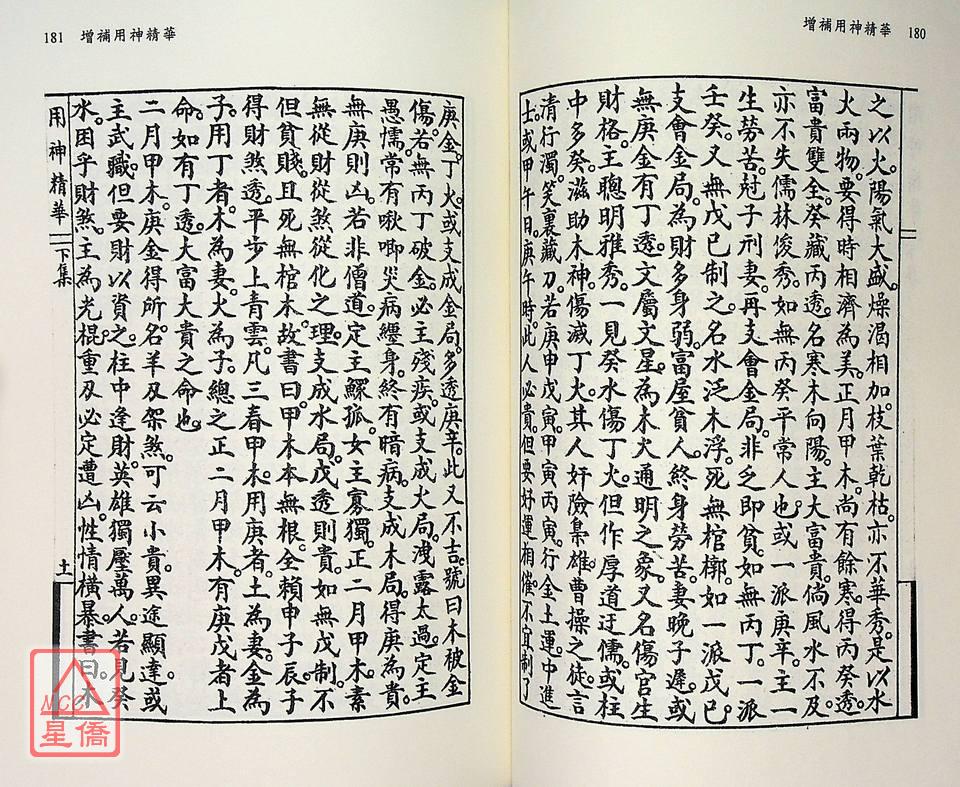 增補用神精華 180
之以火。陽氣大盛。燥渴相加。枝葉乾枯。亦不華秀。是以水
火兩物。要得時相濟為美。正月甲木。尚有餘寒。得丙癸透。
富貴雙全。癸藏丙透。名寒木向陽。主大富貴。倘風水不及
亦不失儒林俊秀。如無丙癸平常人也。或一派庚辛。主一
生勞苦。尅子刑妻。再支會金局。非乏即貧。如無丙丁。一派
壬癸。又無戊己制之。名水泛木浮。死無棺槨。如一派戊己。
支會金局。為財多身弱。富屋貧人。終身勞苦。妻晚子遲。或
無庚金。有丁透。文屬文星。為木火通明之象。又名傷官生
財格。主聰明雅秀。一見癸水傷丁火。但作厚道迂儒。或柱
中多癸。滋助木神。傷滅丁火。其人奸險梟雄。曹操之徒。言
清行濁。笑裏藏刀。若庚申戊寅。甲寅丙寅。行金土運。中進
士。或甲午日。庚午時。此人必貴。但要好運相催。不宜制了
181 增補用神精華
庚金。丁火。或支成金局。多透庚辛。此又不吉。號曰木被金
傷。若無丙丁破金。必主殘疾。或支成火局。洩露太過。定主
愚懦。常有啾唧災病纏身。終有暗病。支成木局。得庚為貴。
無庚則凶。若非僧道。定主鰥孤。女主寡獨。正二月甲木。素
無從財從煞從化之理。支成水局。戊透則貴。如無戊制。不
但貧賤。且死無棺木。故書曰。甲木本無根。全賴申子辰。手
得財煞透。平步上青雲。凡三春甲木。用庚者。土為妻。金為
子。用丁者。木為妻。火為子。總之正二月甲木。有庚戊者上
命。如有丁透。大富大貴之命也。
二月甲木。庚金得所。名羊刃架煞。可云小貴。異途顯達。或
主武職。但要財以資之。柱中逢財。英雄獨壓萬人。若見癸
水。困乎財煞。主為光棍。重刃必定遭凶。性情橫暴。書曰。木
用神精華
下集
十一
NCC
星僑